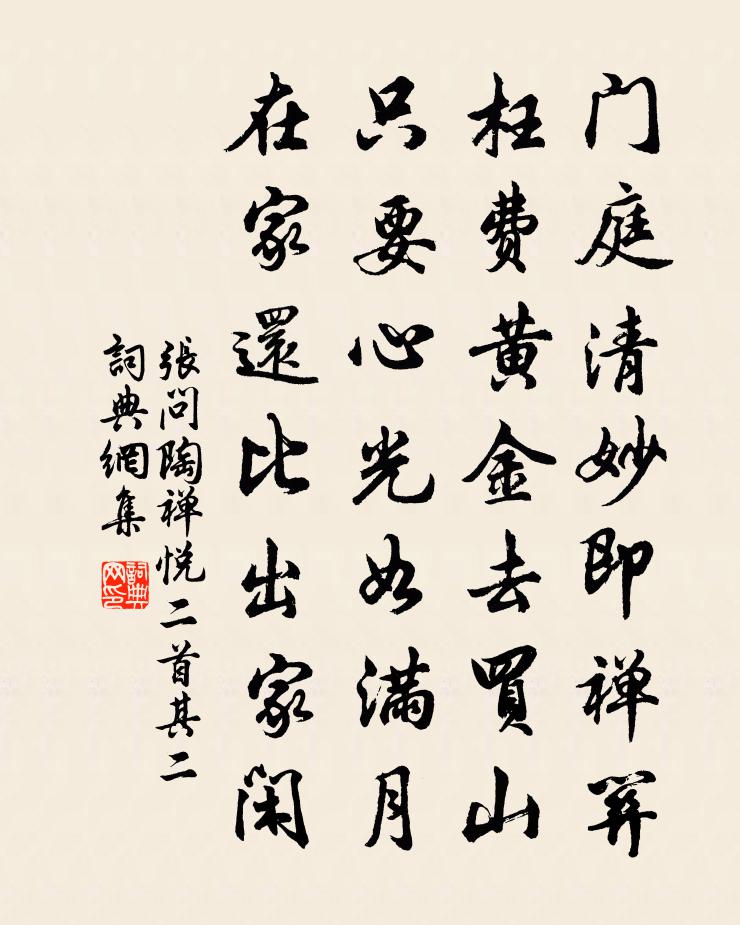 门庭清妙即禅関
枉费黄金去買山
只要心光如满月
在家還比出家闲
张问陶禅悦二首其二
詞典網集
詞典网印